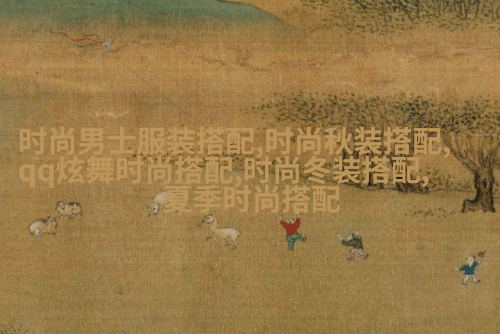 时尚男士服装搭配,时尚秋装搭配,
qq炫舞时尚搭配,时尚冬装搭配,
夏季时尚搭配